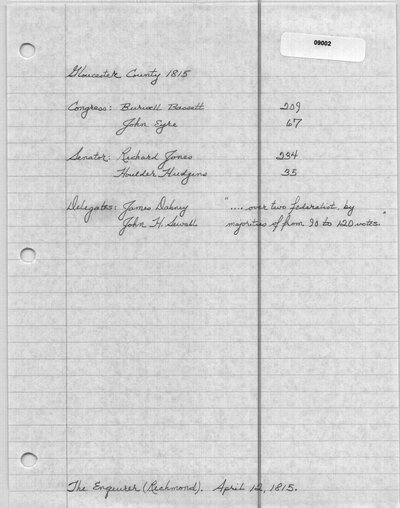 09002
Gloucester County 1815
Congress: Burwell Bassett 209
John Eyre 67
Senator: Richard Jones 234
Houlder Hudgins 35
Delegates: James Dabney "....over two federalist, by
John H. Sewell majorities of from 90 to 120 votes."
The Enquirer (Richmond). April 12, 1815.